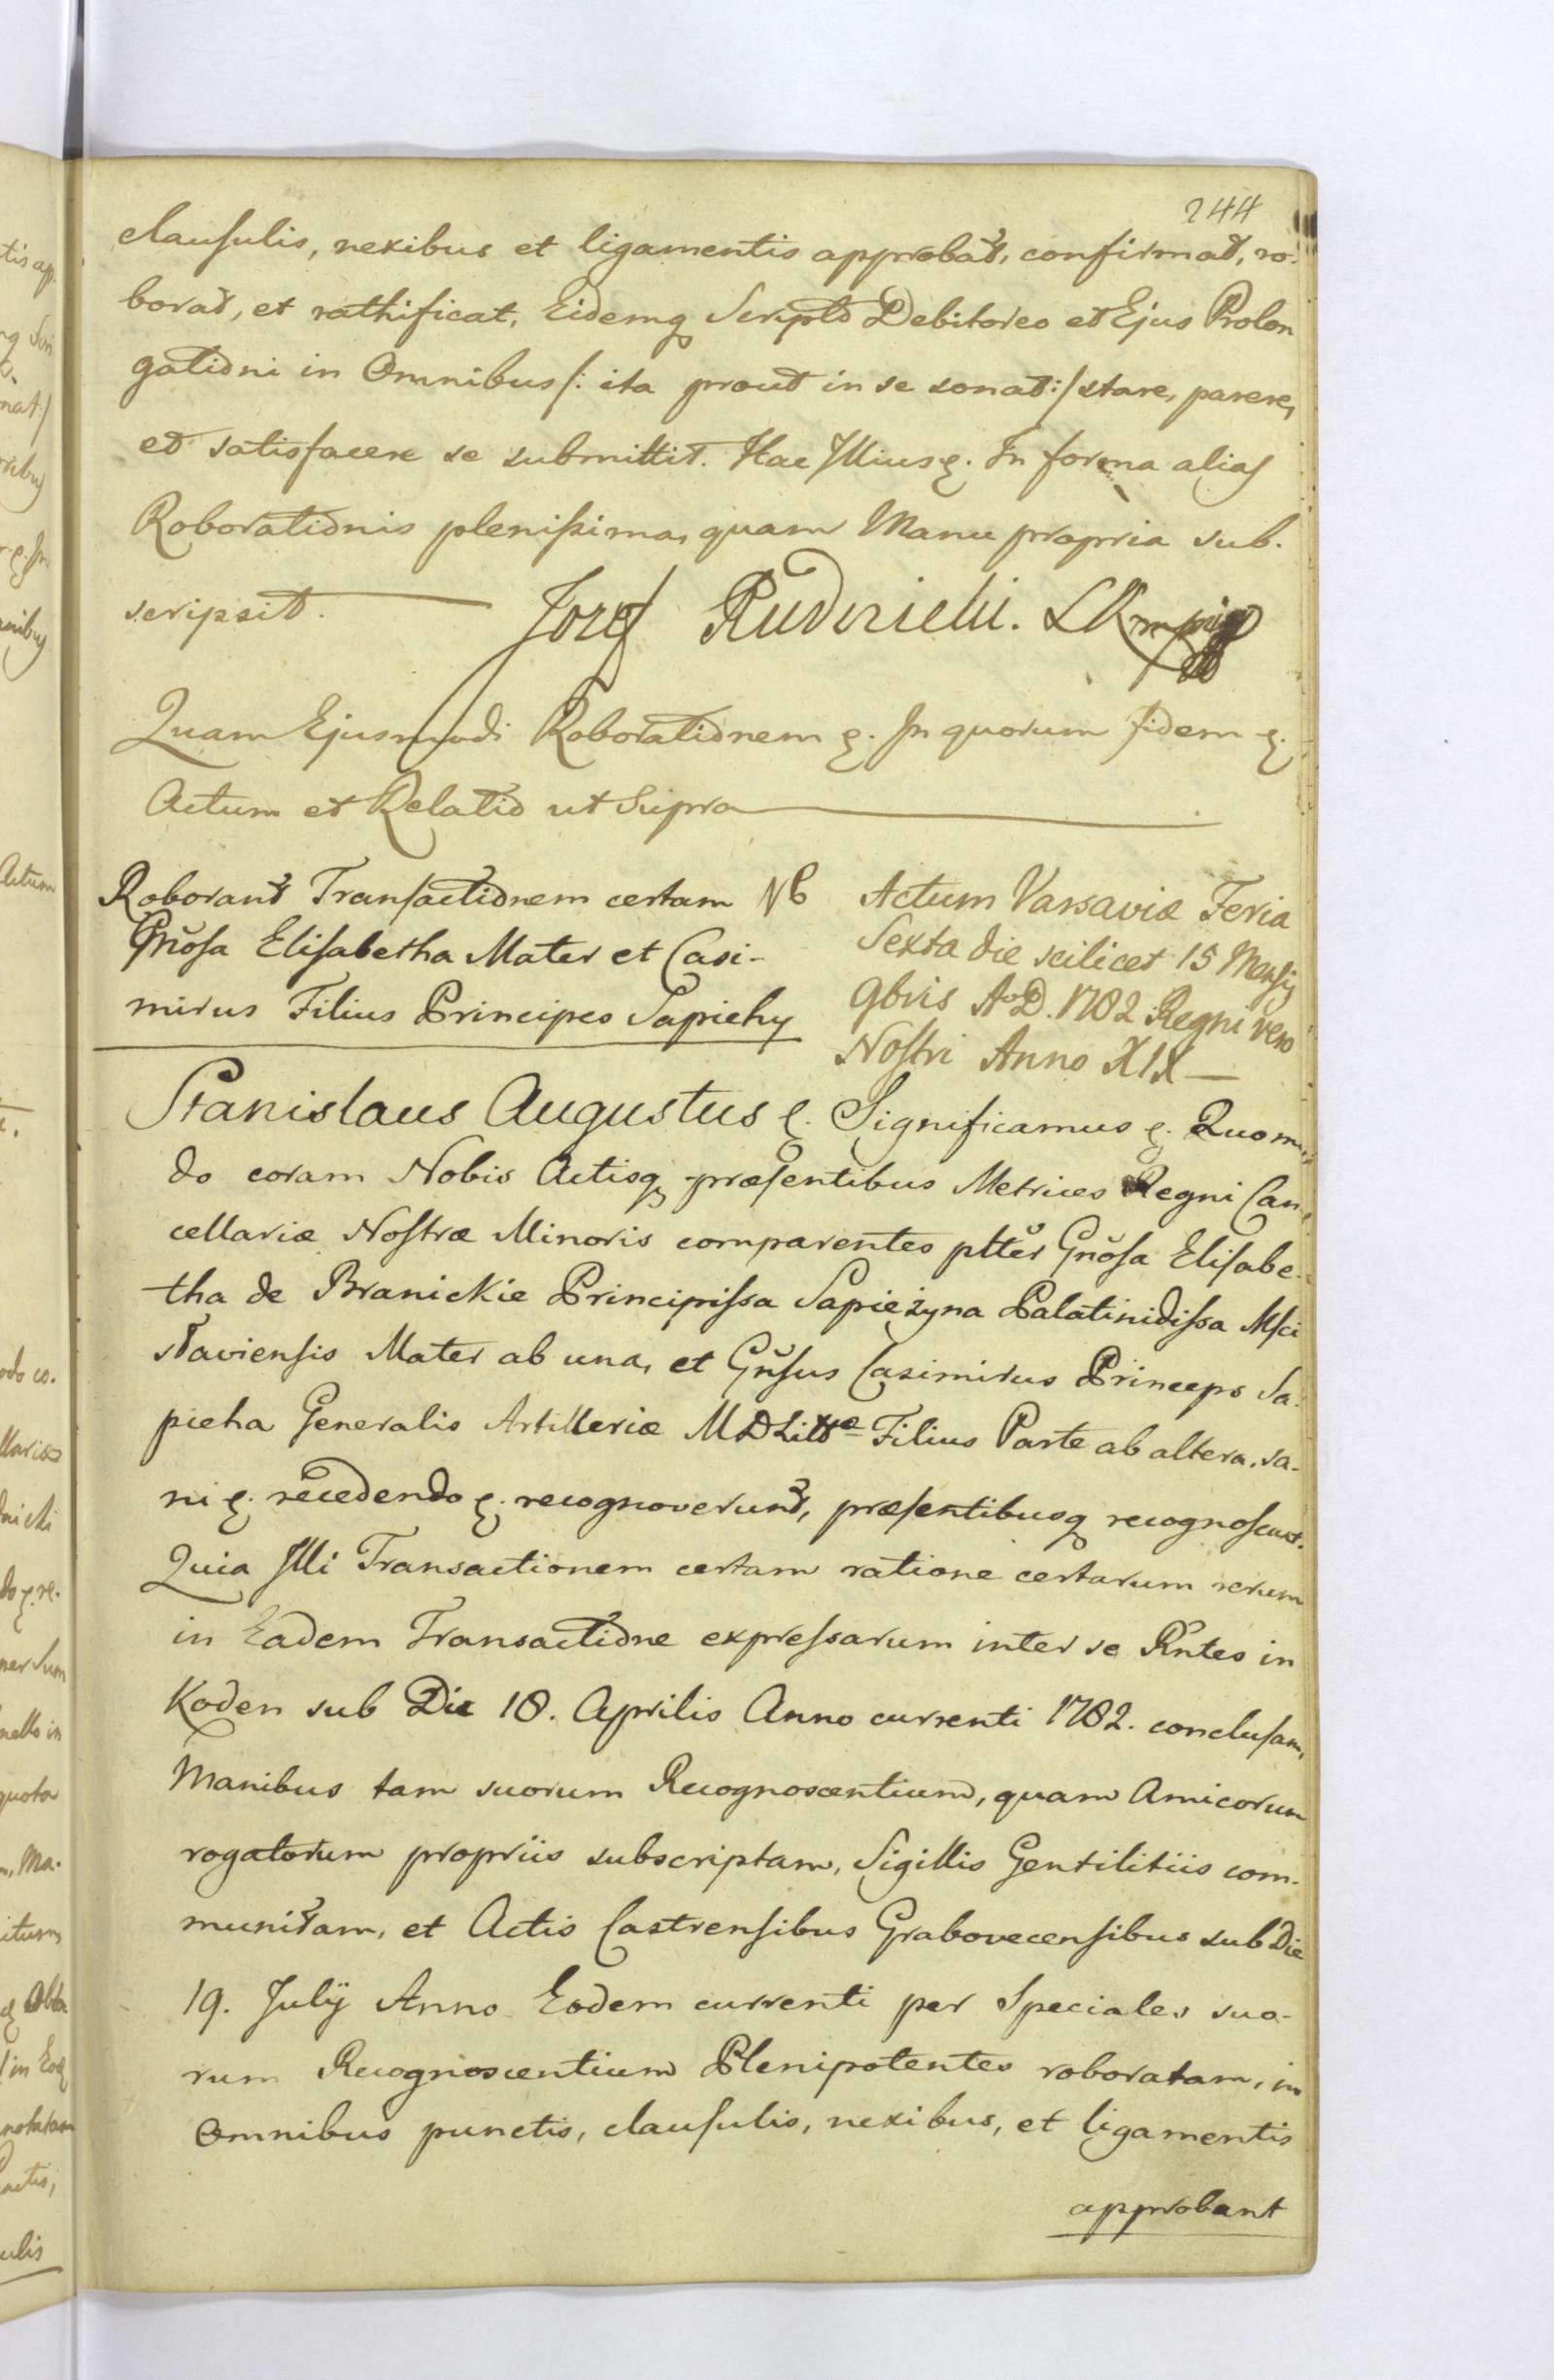 244
clausulis, nexibus et ligamentis approbat, confirmat, ro-
borat, et rathificat, Eidemq Scripto Debitoreo et Ejus Prolon
gationi in Omnibus /: ita prout in se sonat :/ stare, parere,
et satisfacere se submittit. Hac Illius &. In forma alias
Roborationis plenissima, quam Manu propria sub-
scripsit. Jozef
Quam Ejusmodi Roborationem &. In quorum fidem &.
Actum et Relatio ut Supra
Roborant Transactionem certam
Gnosa Elisabetha Mater et Casi-
mirus Filius Principes Sapiehy
NB Actum Varsaviæ Feria
Sexta die scilicet 15 Mensis
9bris A. D. 1782 Regni vero
Nostri Anno XIX
Stanislaus Augustus &. Significamus &. Quomo
do coram Nobis Actisq præsentibus Metrices Regni Can
cellariæ Nostræ Minoris comparentes pltter Gnosa Elisabe-
tha de Branickie Principissa Sapieżyna Palatinidissa Msci
slaviensis Mater ab una, et Gnsus Casimirus Princeps Sa-
pieha Generalis Artilleriæ MDLittæ Filius Parte ab altera, sa-
ni &. recedendo &. recognoverunt, præsentibusq recognoscunt.
Quia Illi Transactionem certam ratione certarum rerum
in Eadem Transactione expressarum inter se Rntes in
Koden sub Die 18. Aprilis Anno currenti 1782. conclusam,
Manibus tam suorum Recognoscentium, quam Amicorum
rogatorum propriis subscriptam, Sigillis Gentilitiis com-
munitam, et Actis Castrensibus Grabovecensibus sub Die
19. Julÿ Anno Eodem currenti per Speciales suo-
rum Recognoscentium Plenipotentes roboratam, in
Omnibus punctis, clausulis, nexibus, et ligamentis
approbant